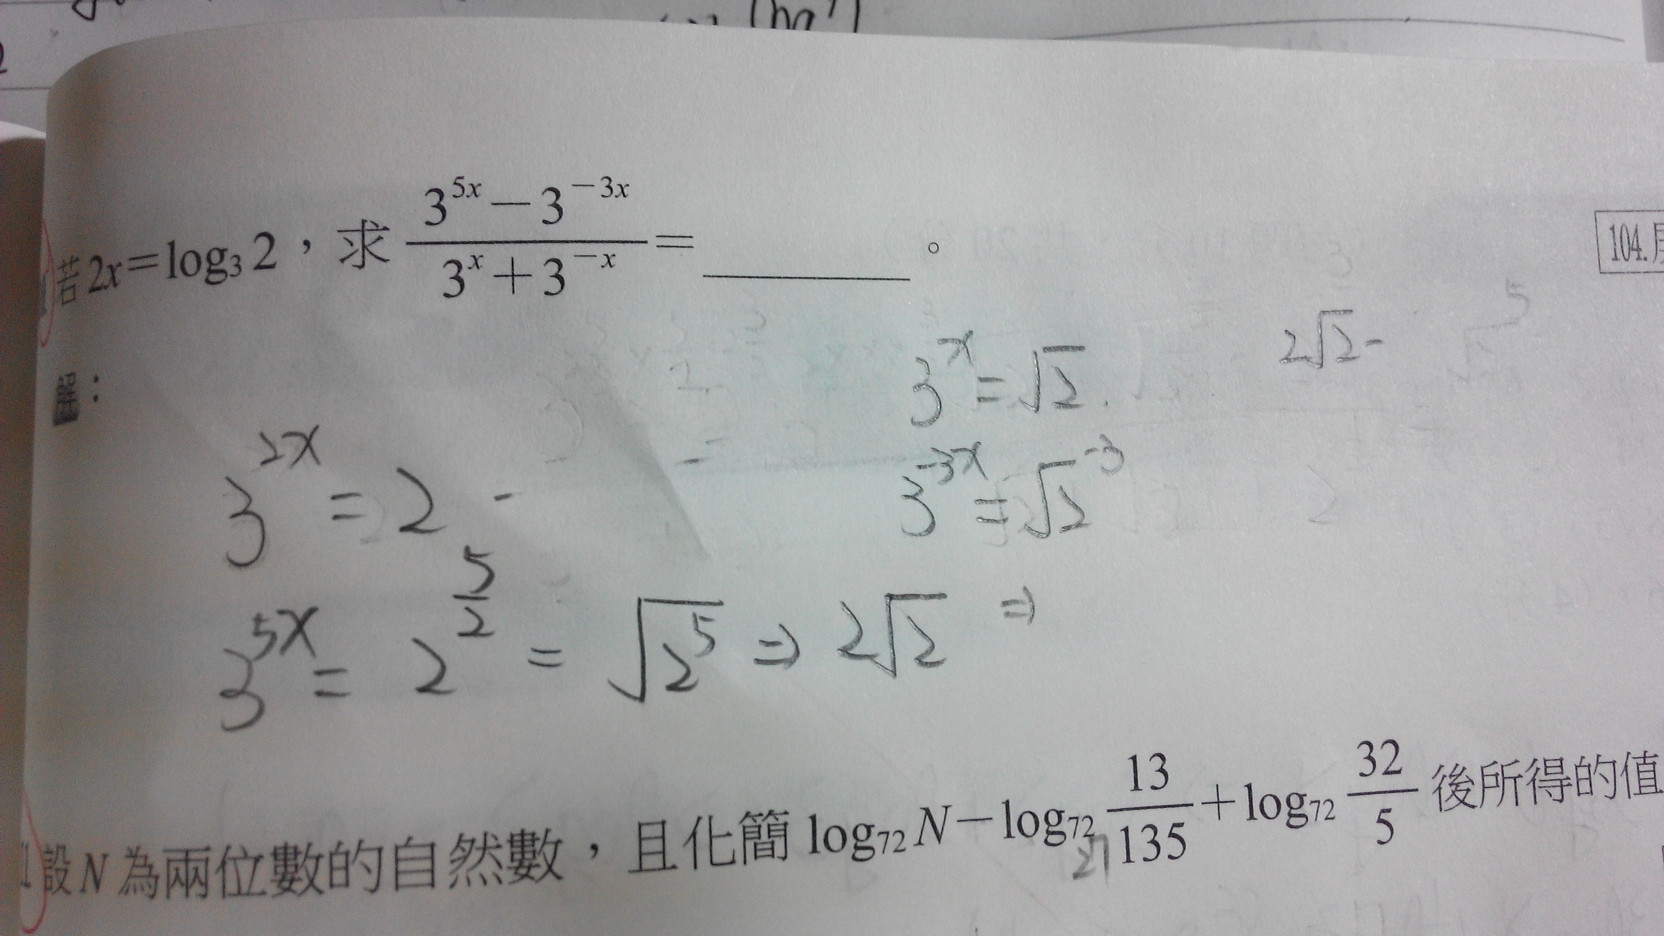 (ba')
若 2x=log₃2，求 \frac{3^{5x}-3^{-3x}}{3^x+3^{-x}}=______。
104.
解：
3^x=√2
2√2-
3^{2x}=2-
3^{-3x}=√2^{-3}
3^{5x}=2^{\frac{5}{2}}=√2^5⇒2√2⇒
設N為兩位數的自然數，且化簡 log₇₂N-log₇₂\frac{13}{135}+log₇₂\frac{32}{5}後所得的值
27